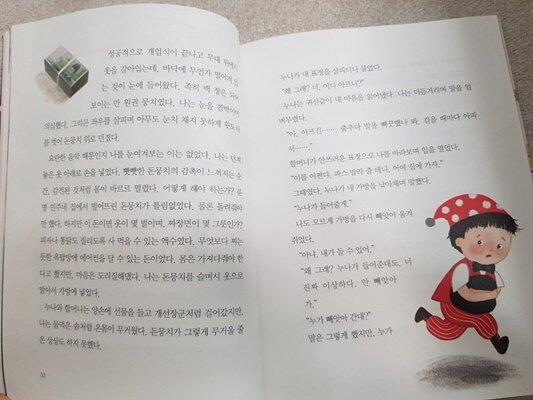 성공적으로 개업식이 끝나고 무대 뒤에서
옷을 갈아입는데, 바닥에 무언가 떨어져 있
는 것이 눈에 들어왔다. 족히 백 장은 되어
보이는 만 원권 뭉치였다. 나는 눈을 깜박이며
의심했다. 그리곤 좌우를 살피며 아무도 눈치 채지 못하게 윗도리
를 벗어 돈뭉치 위로 던졌다.
요란한 음악 때문인지 나를 눈여겨보는 이는 없었다. 나는 던져
놓은 옷 아래로 손을 넣었다. 빳빳한 돈뭉치의 감촉이 느껴지는 순
간, 감전된 것처럼 몸이 바르르 떨렸다. 어떻게 해야 하는가? 분
명 민주네 집에서 떨어뜨린 돈뭉치가 틀림없었다. 물론 돌려줘야
만 했다. 하지만 이 돈이면 옷이 몇 벌이며, 짜장면이 몇 그릇인가?
피자나 통닭도 질리도록 사 먹을 수 있는 액수였다. 무엇보다 찌는
듯한 옥탑방에 에어컨을 달 수 있는 돈이었다. 몸은 가져다줘야 한
다고 했지만, 마음은 도리질해댔다. 나는 돈뭉치를 슬며시 옷으로
말아서 가방에 넣었다.
누나와 할머니는 양손에 선물을 들고 개선장군처럼 걸어갔지만,
나는 물먹은 솜처럼 온몸이 무거웠다. 돈뭉치가 그렇게 무거울 줄
은 상상도 하지 못했다.
누나가 내 표정을 살피더니 물었다.
"왜 그래? 너, 어디 아프니?"
누나는 귀신같이 내 마음을 읽어냈다. 나는 더듬거리며 말을 얼
버무렸다.
"아, 아프긴……. 춤추다 발을 삐끗했나 봐. 걸을 때마다 아파
서……."
할머니가 안쓰러운 표정으로 나를 바라보며 입을 열었다.
"이를 어쩐다. 파스 발라 줄 테니, 어여 집에 가자."
그때였다. 누나가 내 가방을 낚아채며 말했다.
"누나가 들어줄게."
나도 모르게 가방을 다시 빼앗아 움켜
쥐었다.
"아냐, 내가 들 수 있어."
"왜 그래? 누나가 들어준대도, 너
진짜 이상하다. 안 빼앗아
가."
"누가 빼앗아 간대?"
말은 그렇게 했지만, 누가